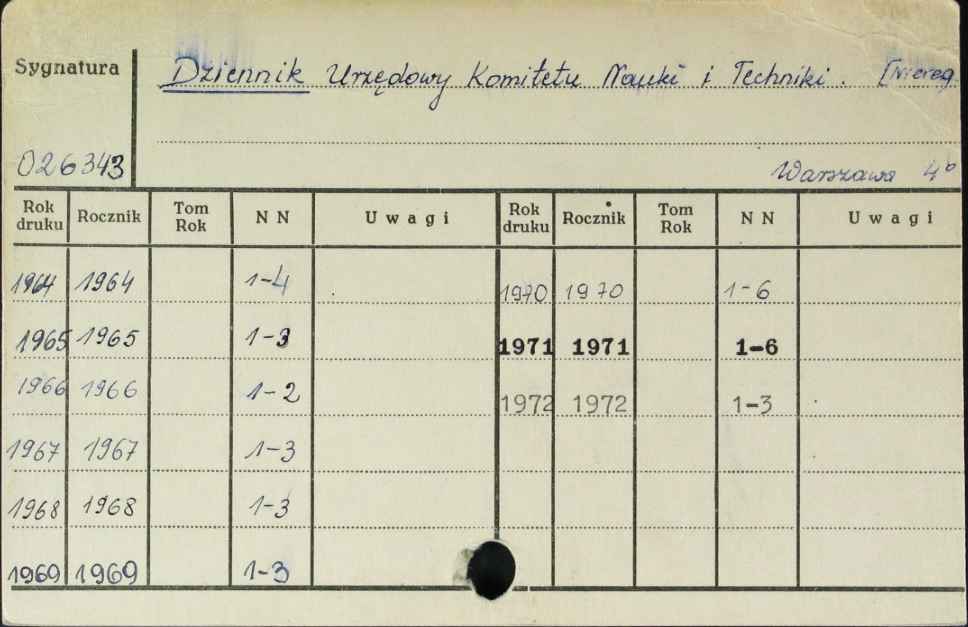 Sygnatura
Dziennik Urzędowy Komitetu Nauki i Techniki. [Niereg.
026343
Warszawa 4°
Rok druku Rocznik Tom Rok NN Uwagi Rok druku Rocznik Tom Rok NN Uwagi
1964 1964 1-4 1970 1970 1-6
1965 1965 1-3 1971 1971 1-6
1966 1966 1-2 1972 1972 1-3
1967 1967 1-3
1968 1968 1-3
1969 1969 1-3